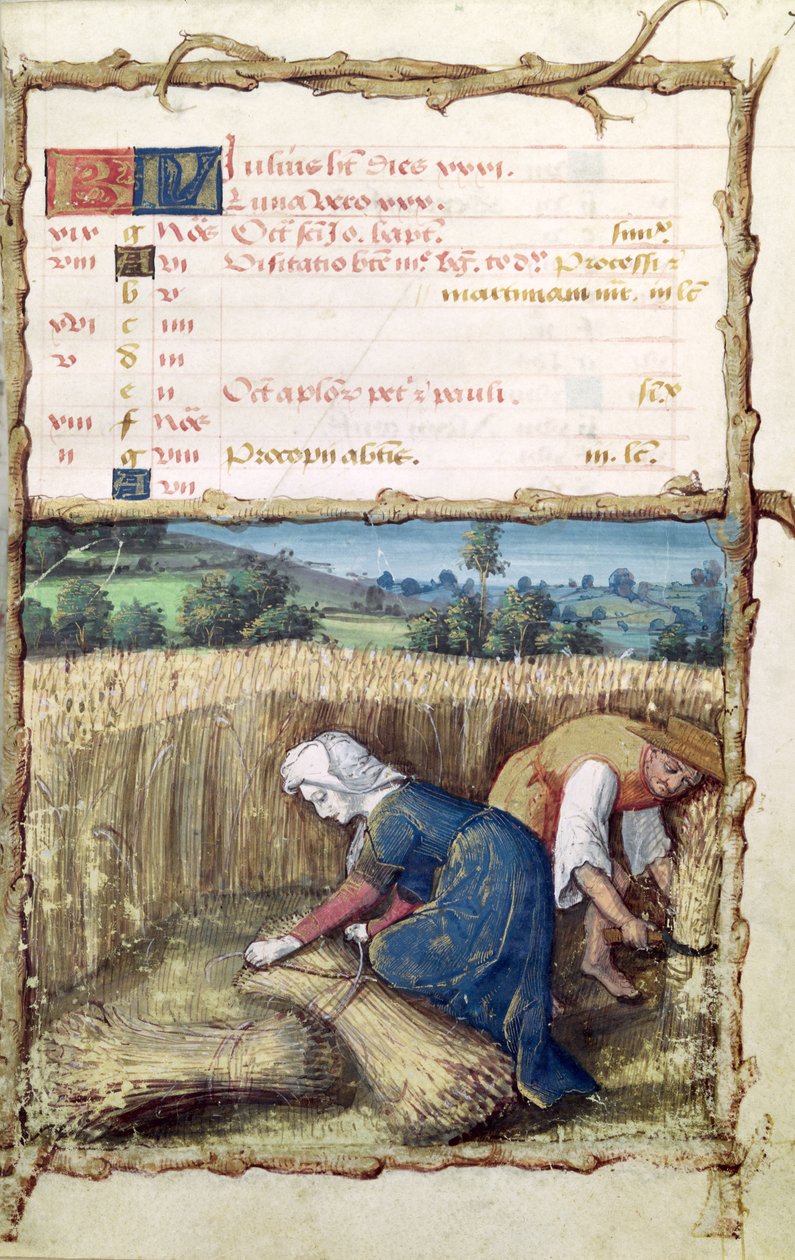 KL Iulius ht dies xxxi.
Luna vero xxx.
xix g Nōs Oct sci Jo. bapt. simr
viii A vi Visitatio bte mr vg. to dr Processi &
b v martiniani mr. iii lc
xvi c iiii
v d iii
e ii Oct aplor petr & pauli. scx
xiii f Nōs
ii g viii Procopii abtis. iii. lc.
A vii